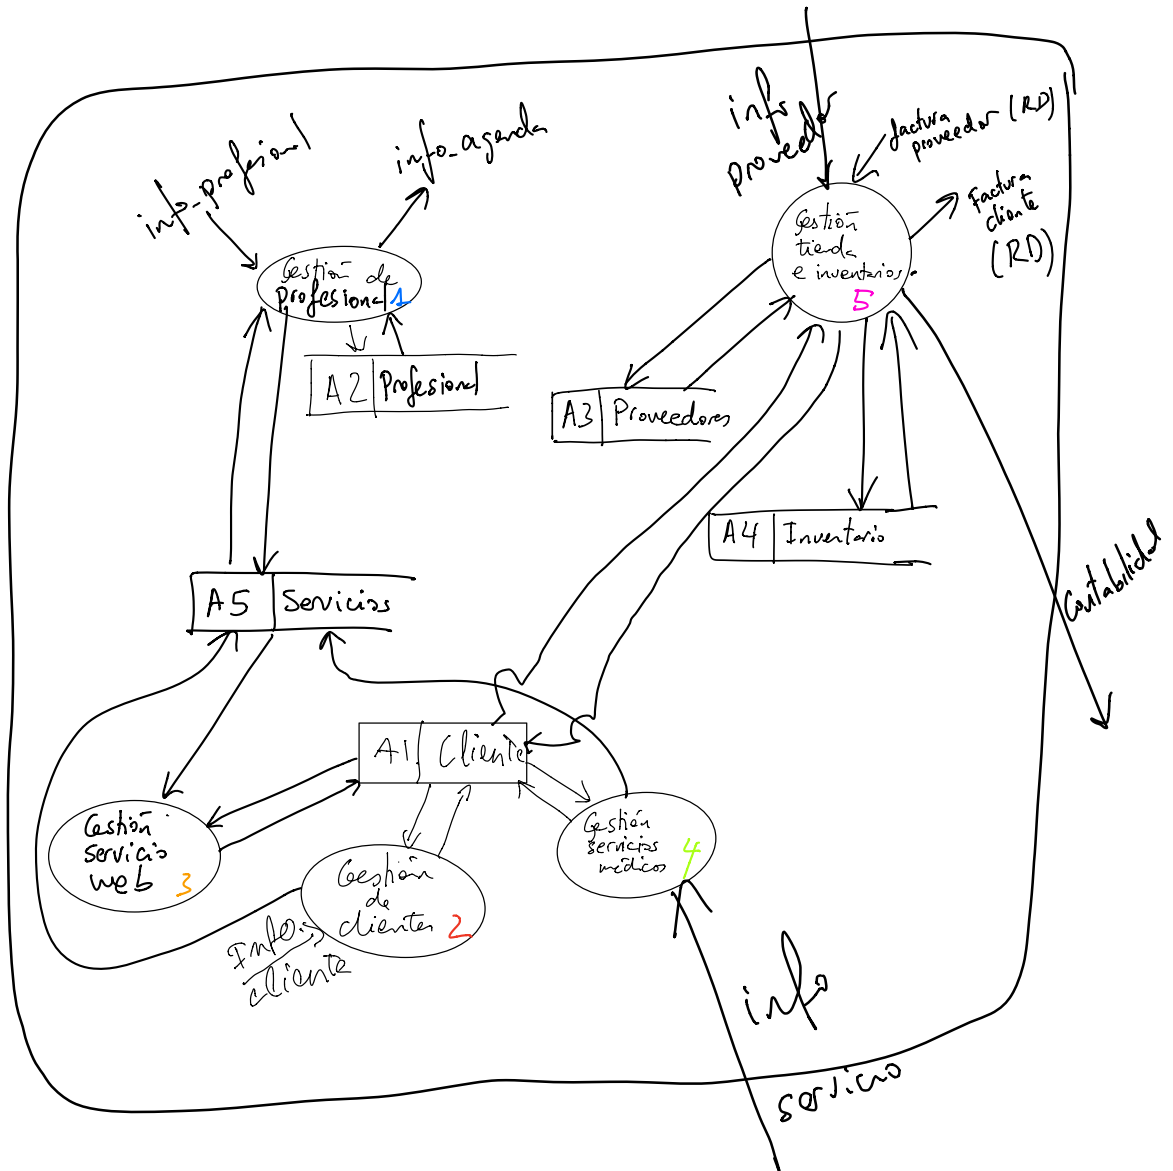 info_profesional
info_agenda
info
proveedor
factura
proveedor (RD)
Factura
cliente
(RD)
Gestión de
profesional 1
Gestión
tienda
e inventarios
5
A2 Profesional
A3 Proveedores
A4 Inventario
Contabilidad
A5 Servicios
A1 Cliente
Gestión
servicio
web 3
Gestión
de
clientes 2
Gestión
servicios
médicos 4
Info.
cliente
info
servicio